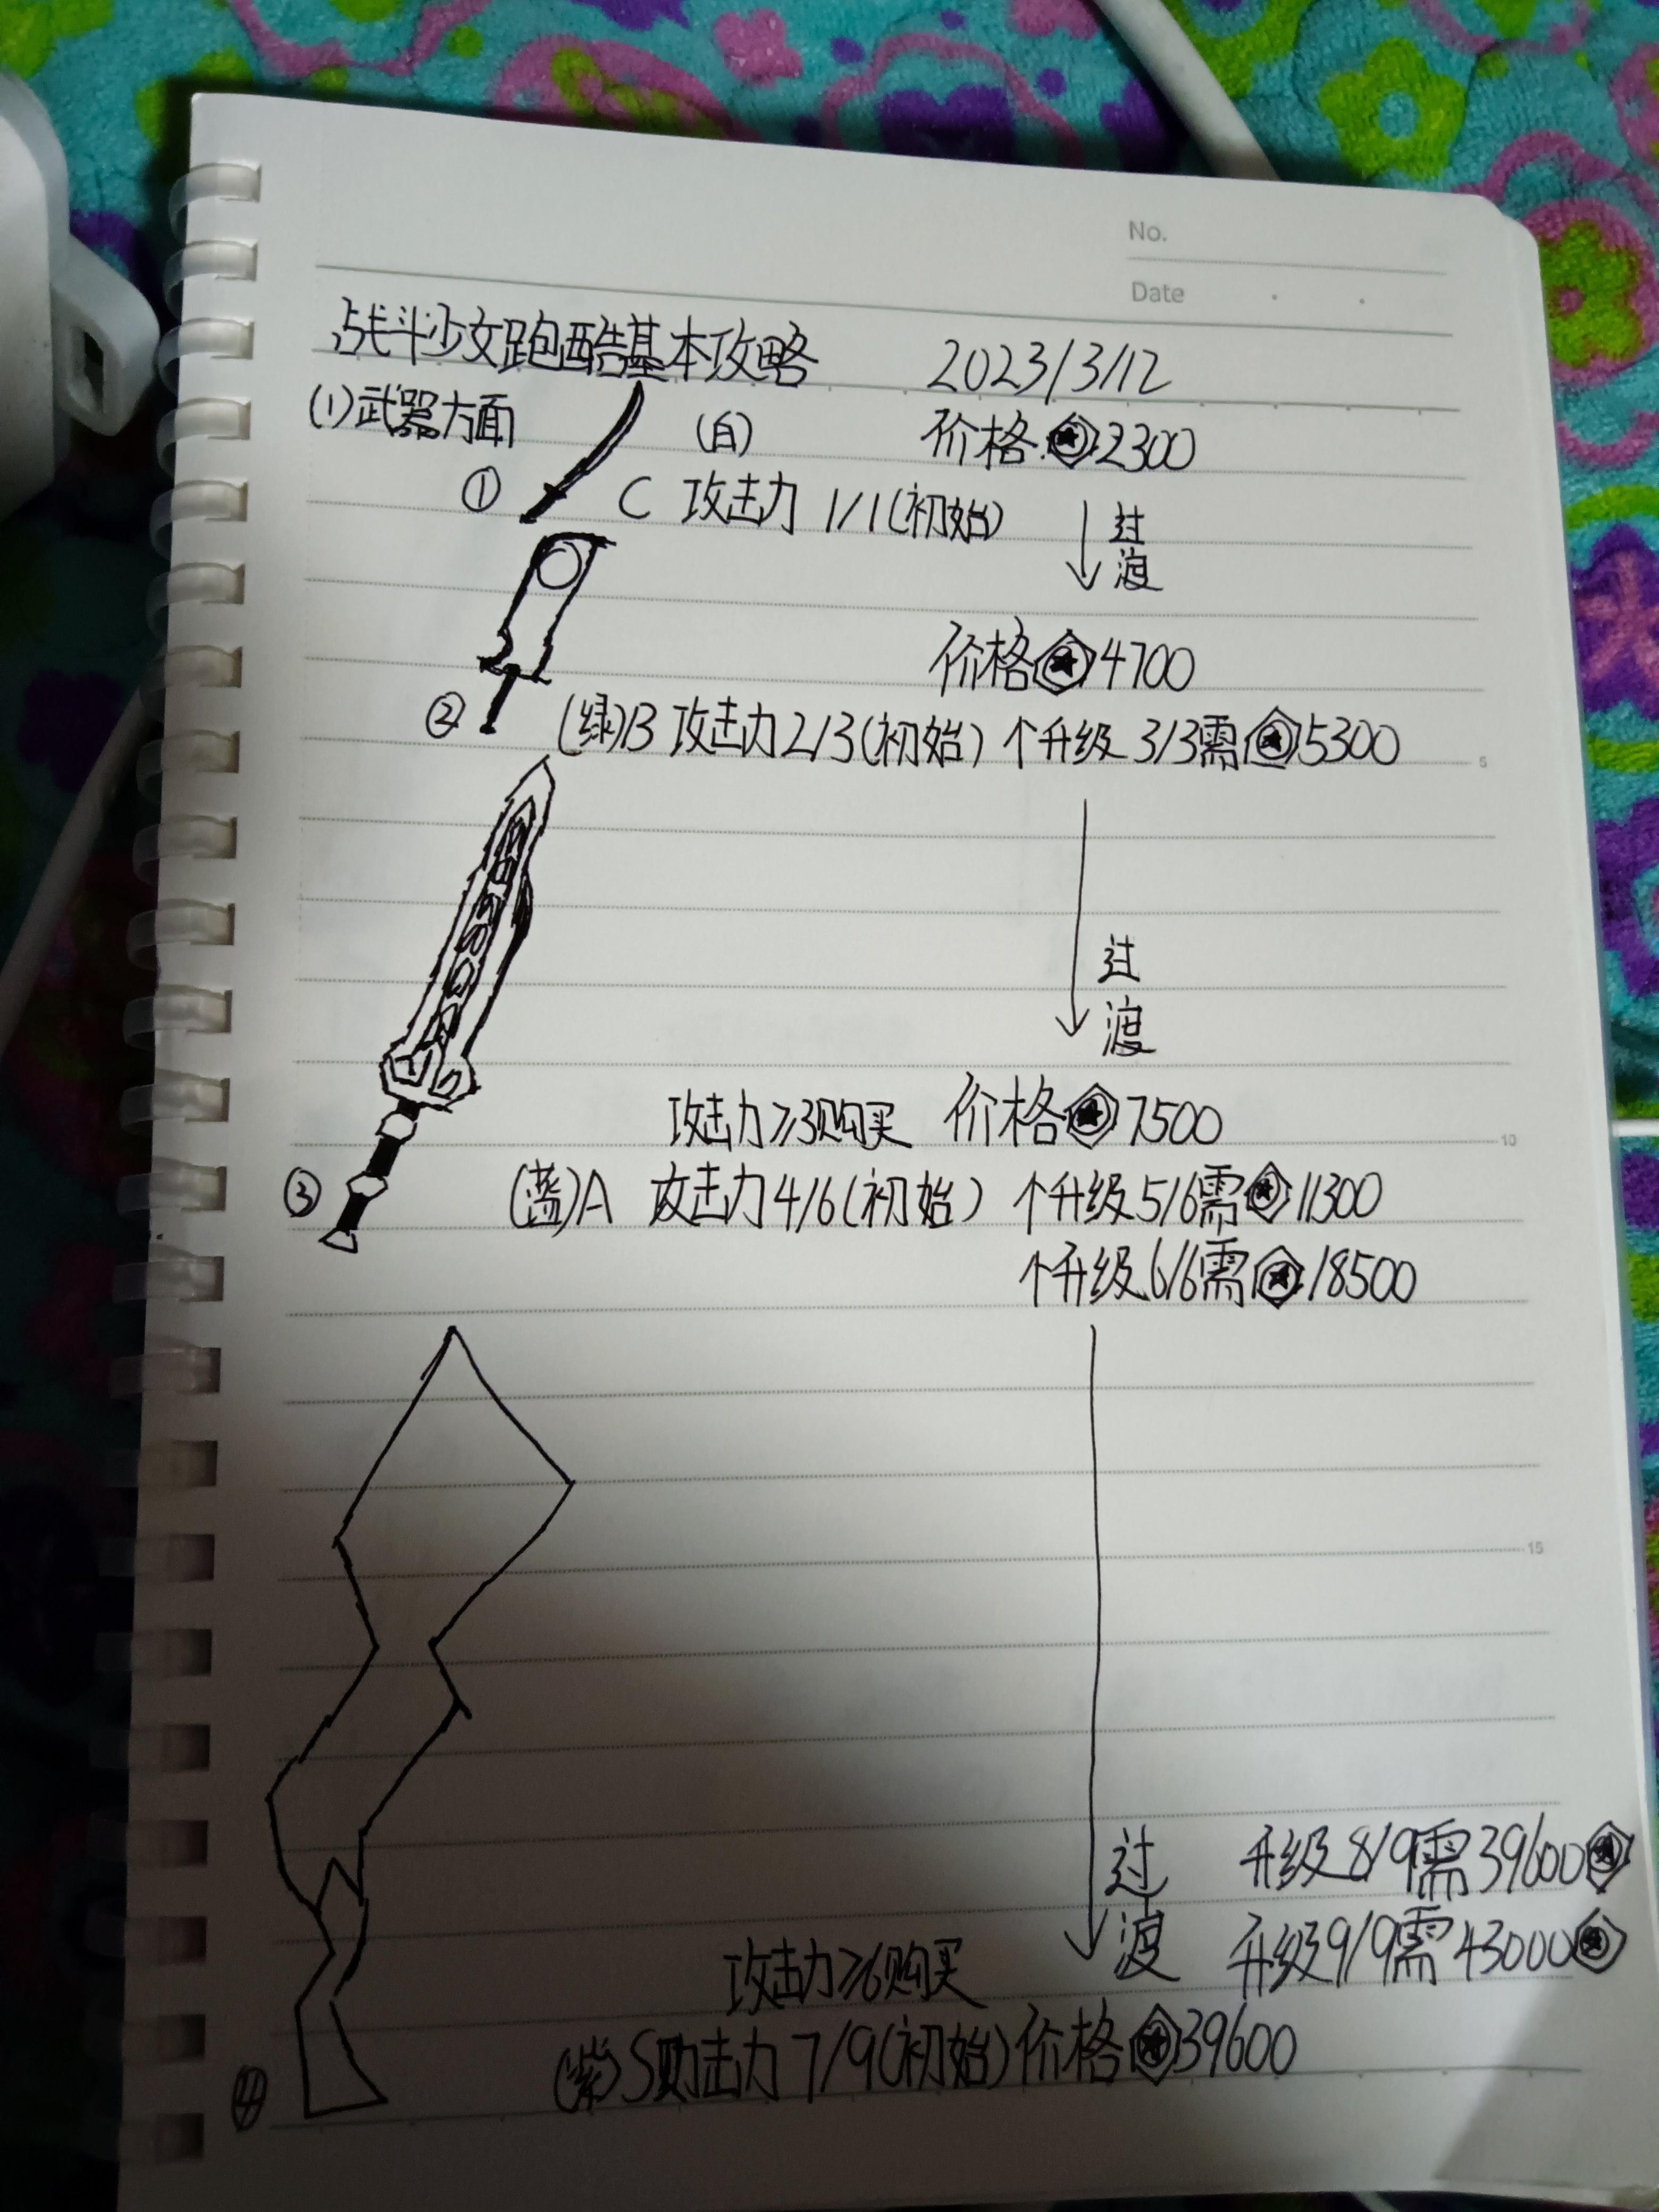 No.
Date
战斗少女跑酷基本攻略 2023/3/12
(1)武器方面 (白) 价格:2300
① C 攻击力 1/1(初始)
过渡
价格 4700
② (绿)B 攻击力2/3(初始) 个升级 3/3需 5300
5
过渡
攻击力≥3购买 价格 7500
10
③ (蓝)A 攻击力4/6(初始) 个升级5/6需 11300
个升级6/6需 18500
15
过渡
升级8/9需39600
升级9/9需43000
攻击力≥6购买
④ (紫)S 攻击力 7/9(初始) 价格 39600